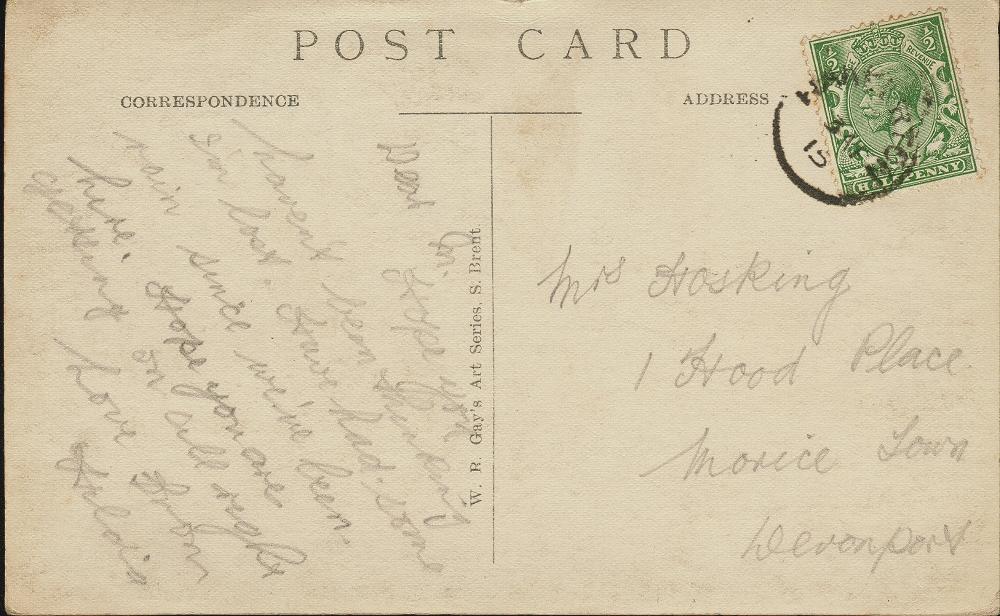 POST CARD
CORRESPONDENCE
ADDRESS
½ ½
REVENUE
HALFPENNY
15
Dear Hope you
havent been thinking
I'm lost. Have had some
rain since we've been
here. Hope you are
getting on all right
Love from
W. R. Gay's Art Series, S. Brent.
Mrs Hosking
1 Hood Place
Morice Town
Devonport